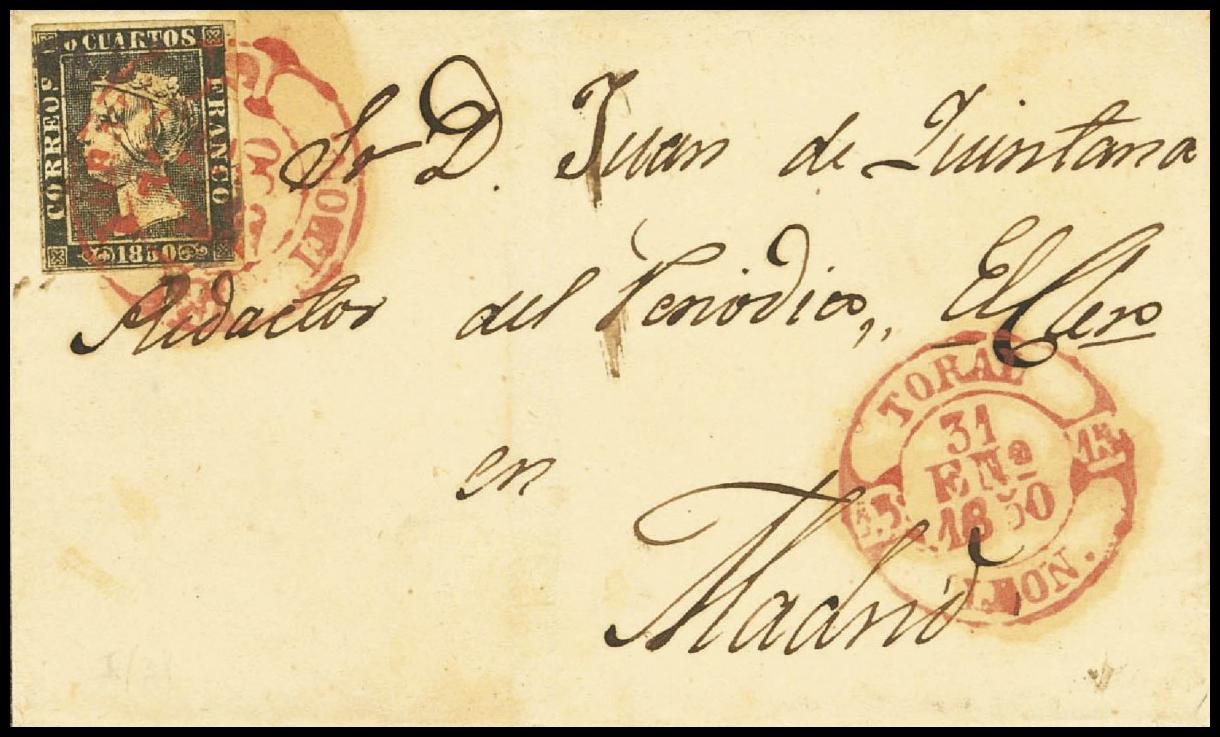 6 CUARTOS
CORREOS
FRANCO
1850
Sr D. Juan de Quintana
Redactor del Periodico,, El Clero
en
Madrid
TORAL
31
ENº
1850
15
15
LEON.